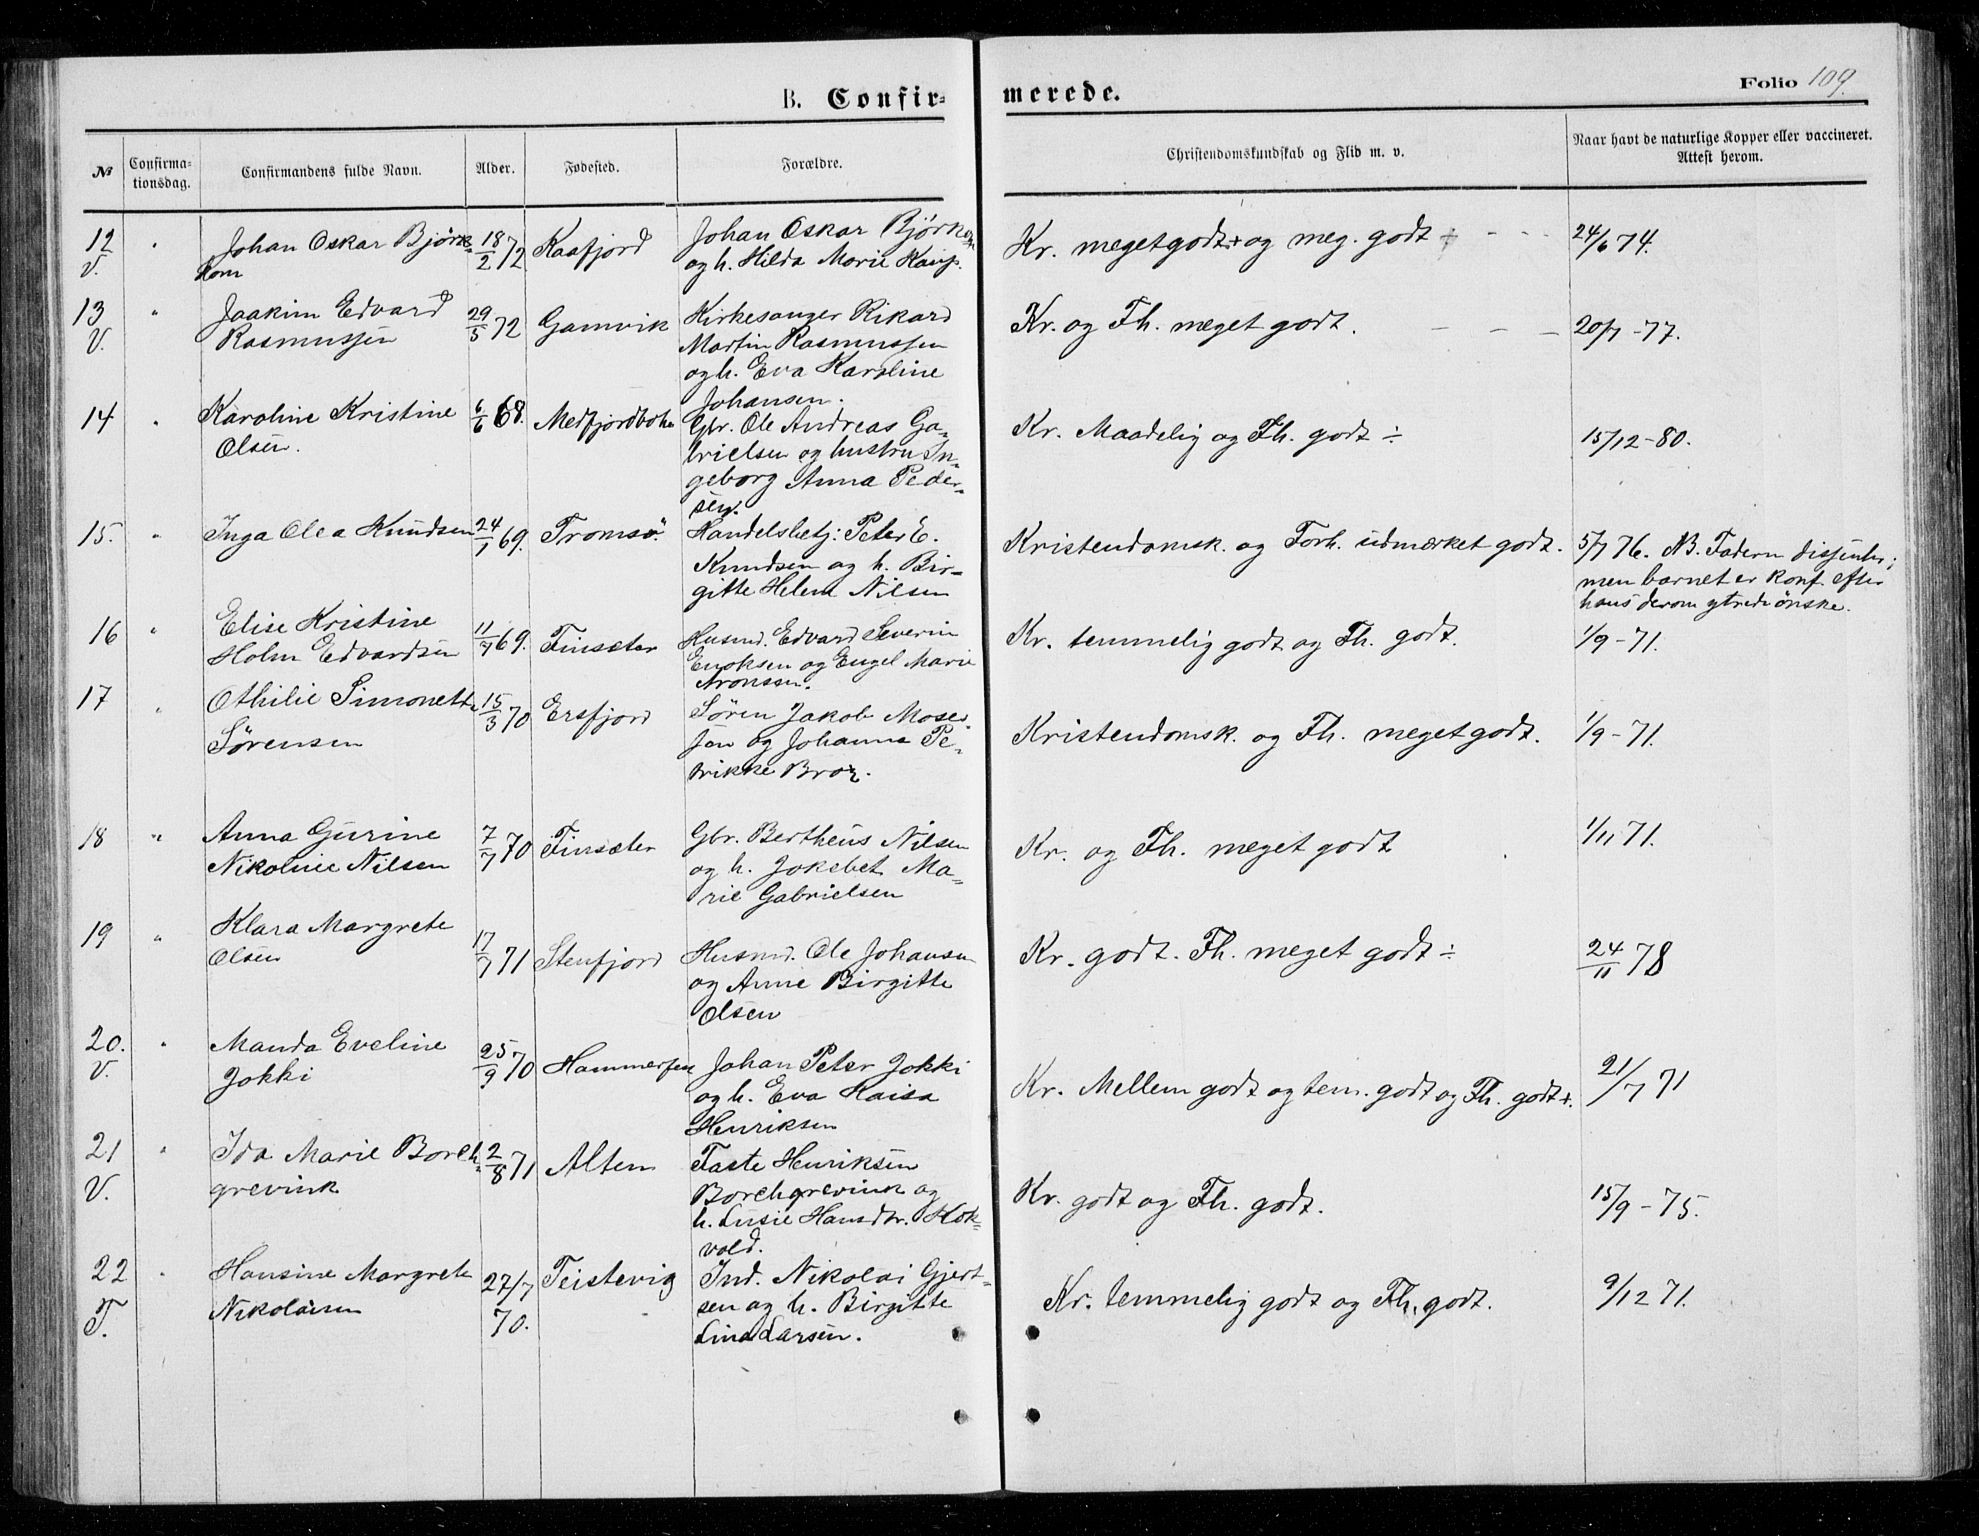 B. Confir-
merede.
Folio 109.
№
Confirma-
tionsdag.
Confirmandens fulde Navn.
Alder.
Fødested.
Forældre.
Christendomskundskab og Flid m. v.
Naar havt de naturlige Kopper eller vaccineret.
Attest herom.
12
V.
"
Johan Oskar Björk-
kom
18/2 72
Kaafjord
Johan Oskar Bjørkom
og h. Hilda Marie
Kr. megetgodt + og meg. godt +
24/6 74.
13
V.
"
Joakim Edvard
Rasmussen
29/5 72
Gamvik
Kirkesanger Rikard
Martin Rasmussen
og h. Eva Karoline
Johansen.
Kr. og Fh. meget godt.
20/7 - 77.
14
"
Karoline Kristine
Olsen.
6/6 68.
Medfjordbotn
Gbr. Ole Andreas Ga-
brielsen og hustru In-
geborg Anna Peder-
sen.
Kr. Maadelig og Fh. godt ÷
15/12 - 80.
15.
"
Inga Olea Knudsen
24/1 69.
Tromsö.
Handelsbetj: Peter E.
Knudsen og h. Bir-
gitte Helena Nilsen
Kristendomsk. og Forh. udmærket godt.
5/7 76. NB. Faderen dissenter;
men barnet er konf. efter
hans derom ytrede ønske.
16
"
Elise Kristine
Holm Edvardsen
11/7 69.
Finsæter
Husmd. Edvard Severin
Enoksen og Engel Marie
Aronssen.
Kr. temmelig godt og Fh. godt.
1/9 - 71.
17
"
Othilie Simonette
Sørensen
15/3 70
Ersfjord
Søren Jakob Moses-
sen og Johanna Pe-
trikke Brox.
Kristendomsk. og Fh. meget godt.
1/9 - 71.
18
"
Anna Gurine
Nikoline Nilsen
7/7 70
Finsæter
Gbr. Bertheus Nilsen
og h. Jokebet Ma-
rie Gabrielsen
Kr. og Fh. meget godt
1/11 71.
19
"
Klara Margrete
Olsen
17/7 71
Stenfjord
Husmd. Ole Johansen
og Anne Birgitte
Olsen
Kr. godt. Fh. meget godt ÷
24/11 78
20.
V.
"
Manda Eveline
Jokki
25/9 70
Hammerfest
Johan Peter Jokki
og h. Eva Kaisa
Henriksen
Kr. Mellem godt og tem. godt og Fh. godt +.
21/7 71
21
V.
"
Ida Marie Borch-
grevink
2/8 71
Alten
Faste Henriksen
Borchgrevink og
h. Lusie Hansdtr. Kok-
vold.
Kr. godt og Fh. godt.
15/9 - 75.
22
T.
"
Hansine Margrete
Nikolaisen
27/7
70.
Teistevig
Ind. Nikolai Gjert-
sen og h. Birgitte
Lina Larsen.
Kr. temmelig godt og Fh. godt.
9/12 71.